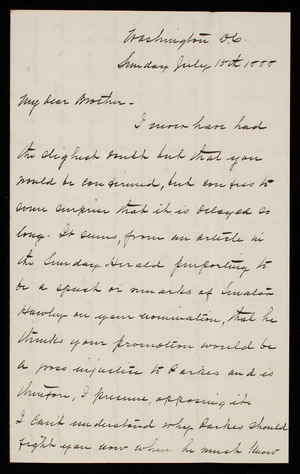 Washington D.C.
Sunday July 15th 1888
My dear Brother -
I never have had
the slightest doubt but that you
would be confirmed, but confess to
some surprise that it is delayed so
long. It seems, from an article in
the Sunday Herald purporting to
be a speech or remarks of Senator
Hawley on your nomination, that he
thinks your promotion would be
a gross injustice to Parkes and is
therefore, I presume, opposing it.
I can't understand why Parkes should
fight you now when he must know